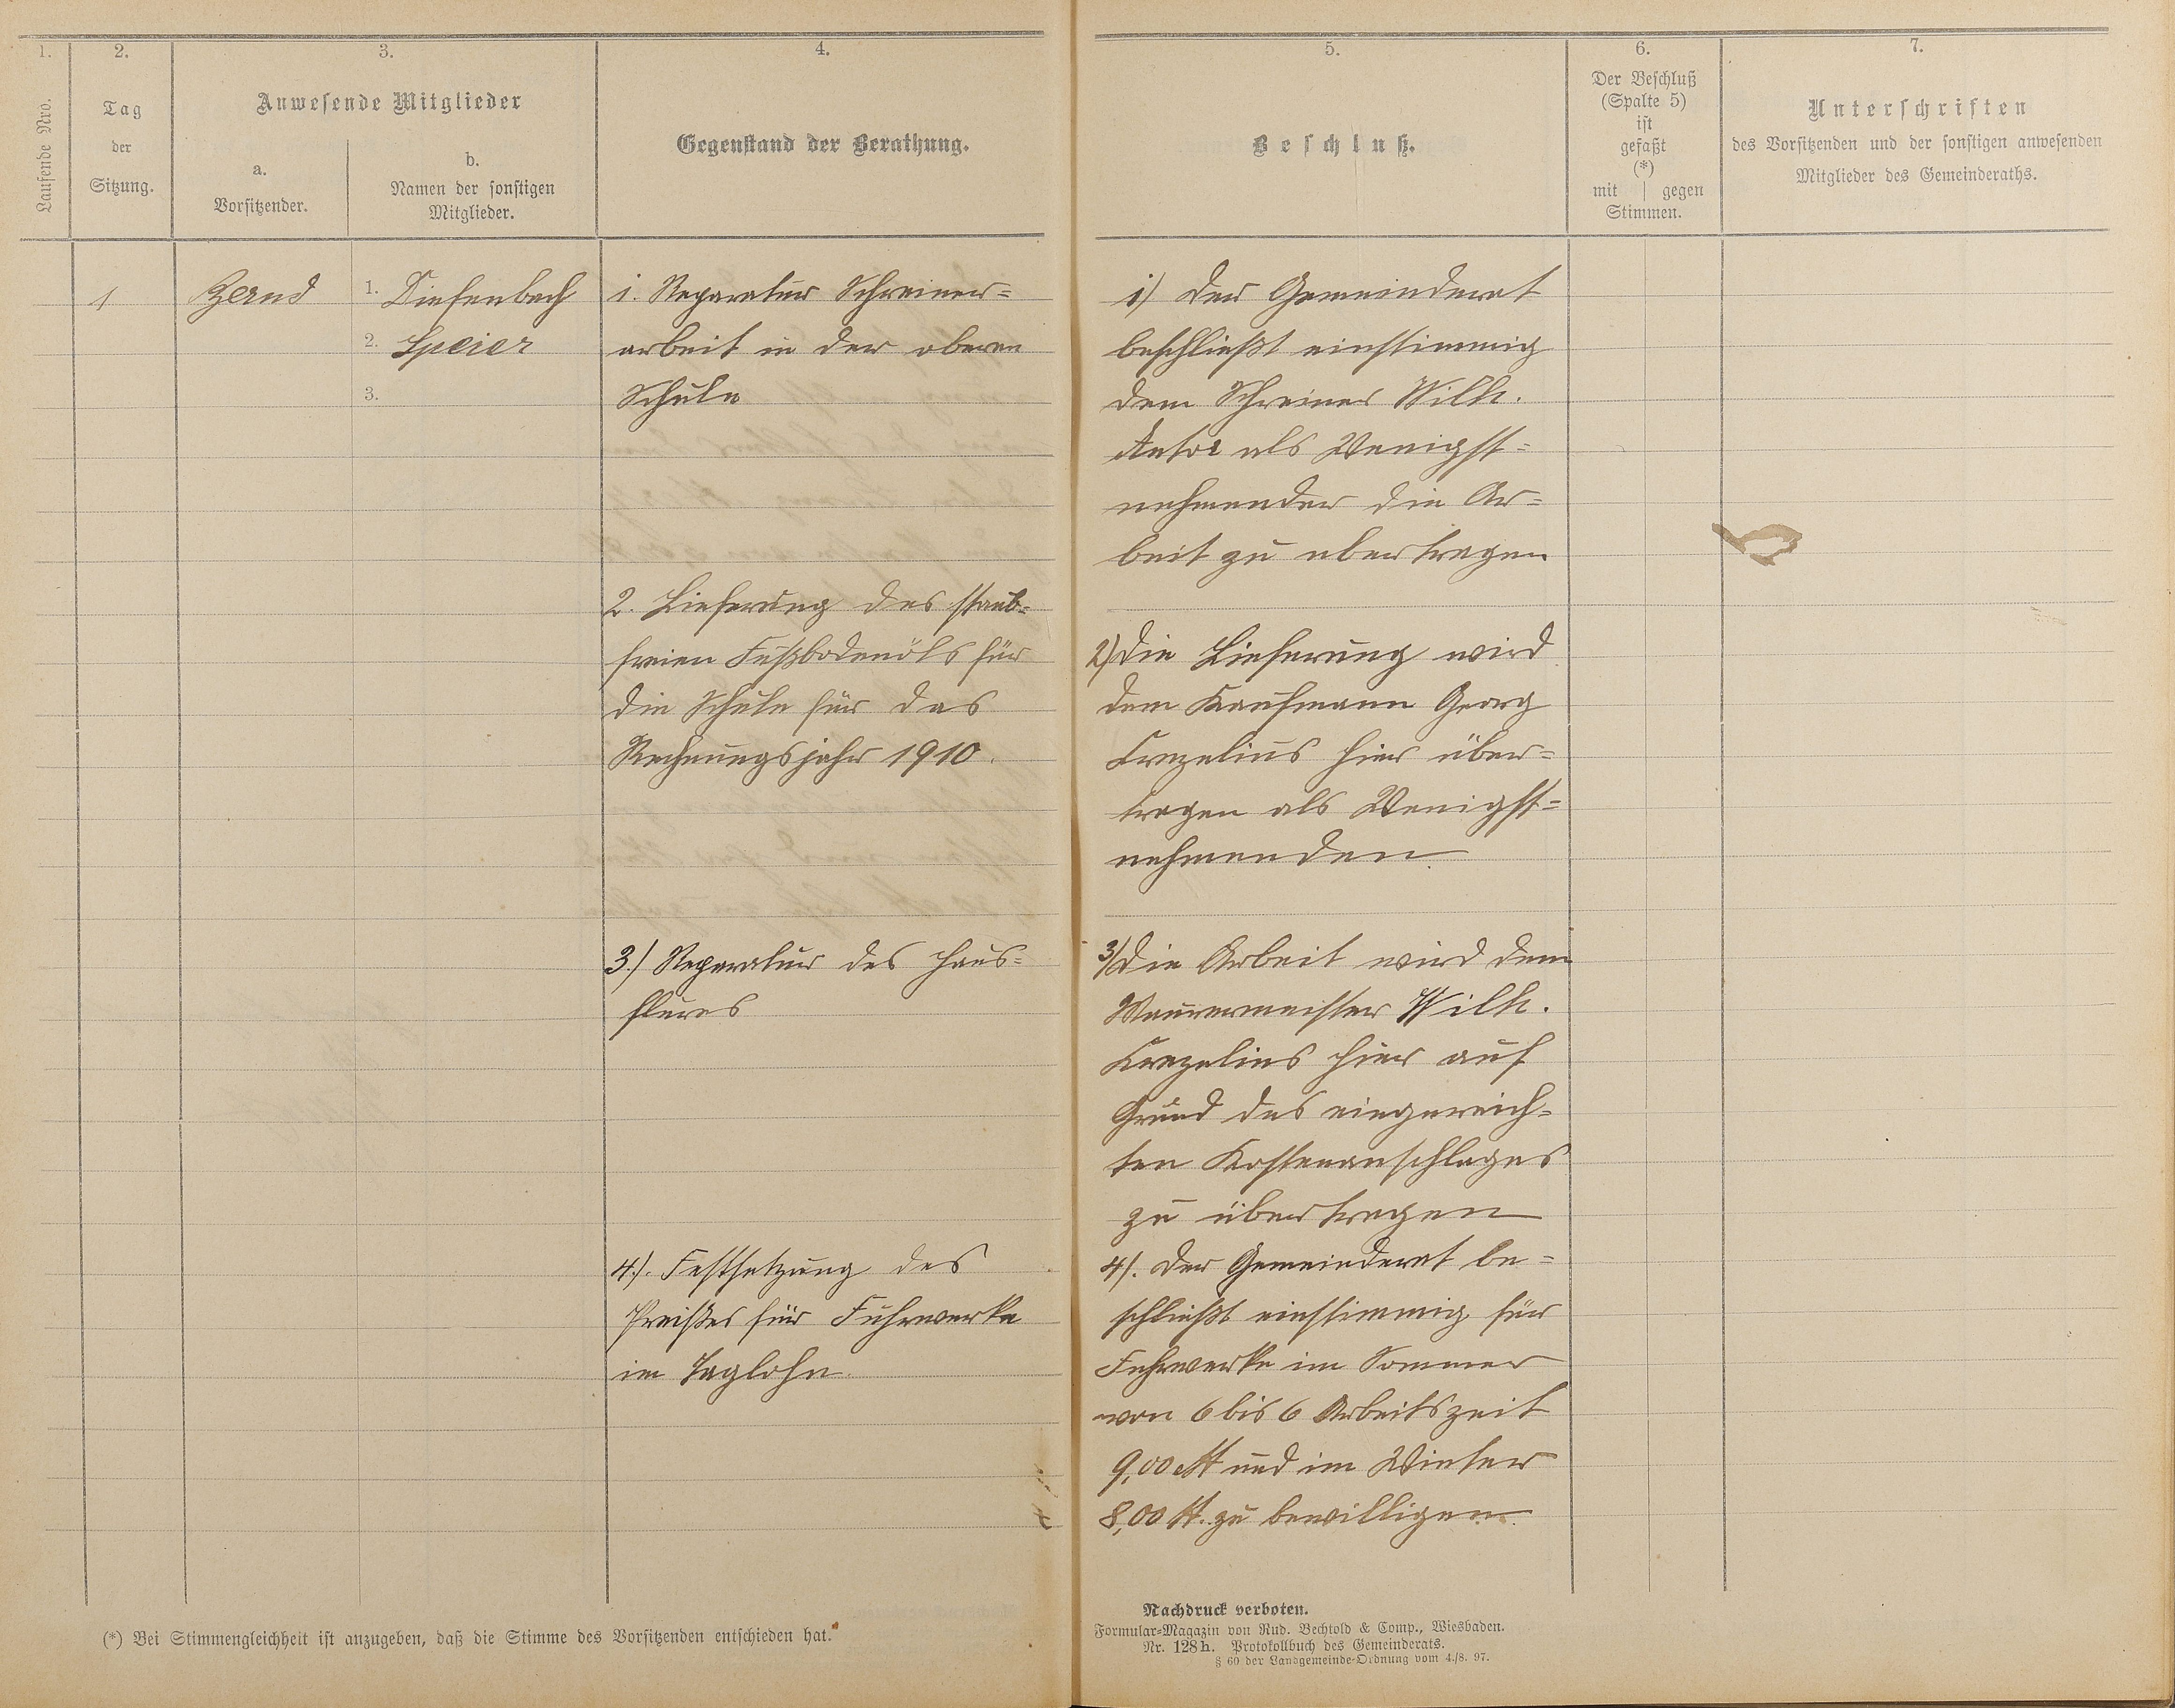 1.
Laufende Nro.
2.
Tag
der
Sitzung.
3.
Anwesende Mitglieder
a.
Vorsitzender.
b.
Namen der sonstigen
Mitglieder.
4.
Gegenstand der Berathung.
5.
Beschluß.
6.
Der Beschluß
(Spalte 5)
ist
gefaßt
(*)
mit | gegen
Stimmen.
7.
Unterschriften
des Vorsitzenden und der sonstigen anwesenden
Mitglieder des Gemeinderaths.
1
Zernd
1. Diefenbach
2. Speier
3.
1. Reparatur Schreiner=
arbeit in der oberen
Schule
2. Lieferung des staub=
freien Fußbodenöls für
die Schule für das
Rechnungsjahr 1910.
3.) Reparatur des Haus=
flures
4.). Festsetzung des
Preißes für Fuhrwerke
im Taglohn.
1) Der Gemeinderat
beschließt einstimmig
dem Schreiner Wilh.
als Wenigst=
nehmender die Ar=
beit zu ubertragen
2) Die Lieferung wird
dem Kaufmann Georg
Krezelius hier über=
tragen als Wenigst=
nehmenden.
3) Die Arbeit wird dem
Maurermeister Wilh.
Krezelius hier auf
Grund des eingereich=
ten Kostenanschlages
zu übertragen
4). Der Gemeinderat be=
schließt einstimmig für
Fuhrwerke im Sommer
von 6 bis 6 Arbeitszeit
9,00 M und im Winter
8,00 M. zu bewilligen.
(*) Bei Stimmengleichheit ist anzugeben, daß die Stimme des Vorsitzenden entschieden hat.
Nachdruck verboten.
Formular=Magazin von Rud. Bechtold & Comp., Wiesbaden.
Nr. 128h. Protokollbuch des Gemeinderats.
§ 60 der Landgemeinde=Ordnung vom 4./8. 97.